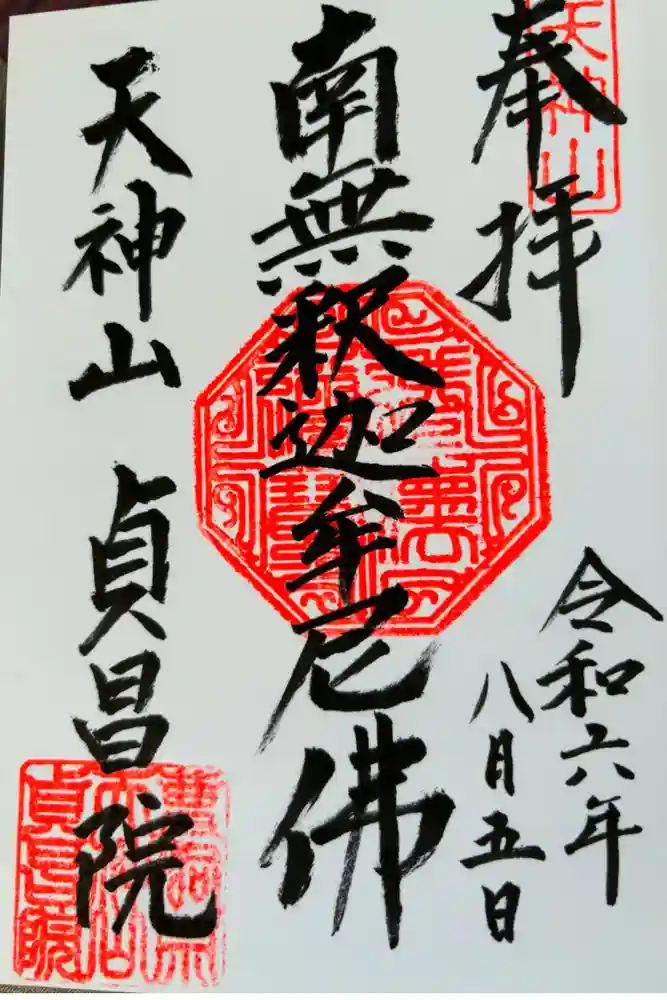 奉拝
天神山
令和六年
八月五日
南無釈迦牟尼佛
天神山 貞昌院
曹洞宗
天神山
貞昌院